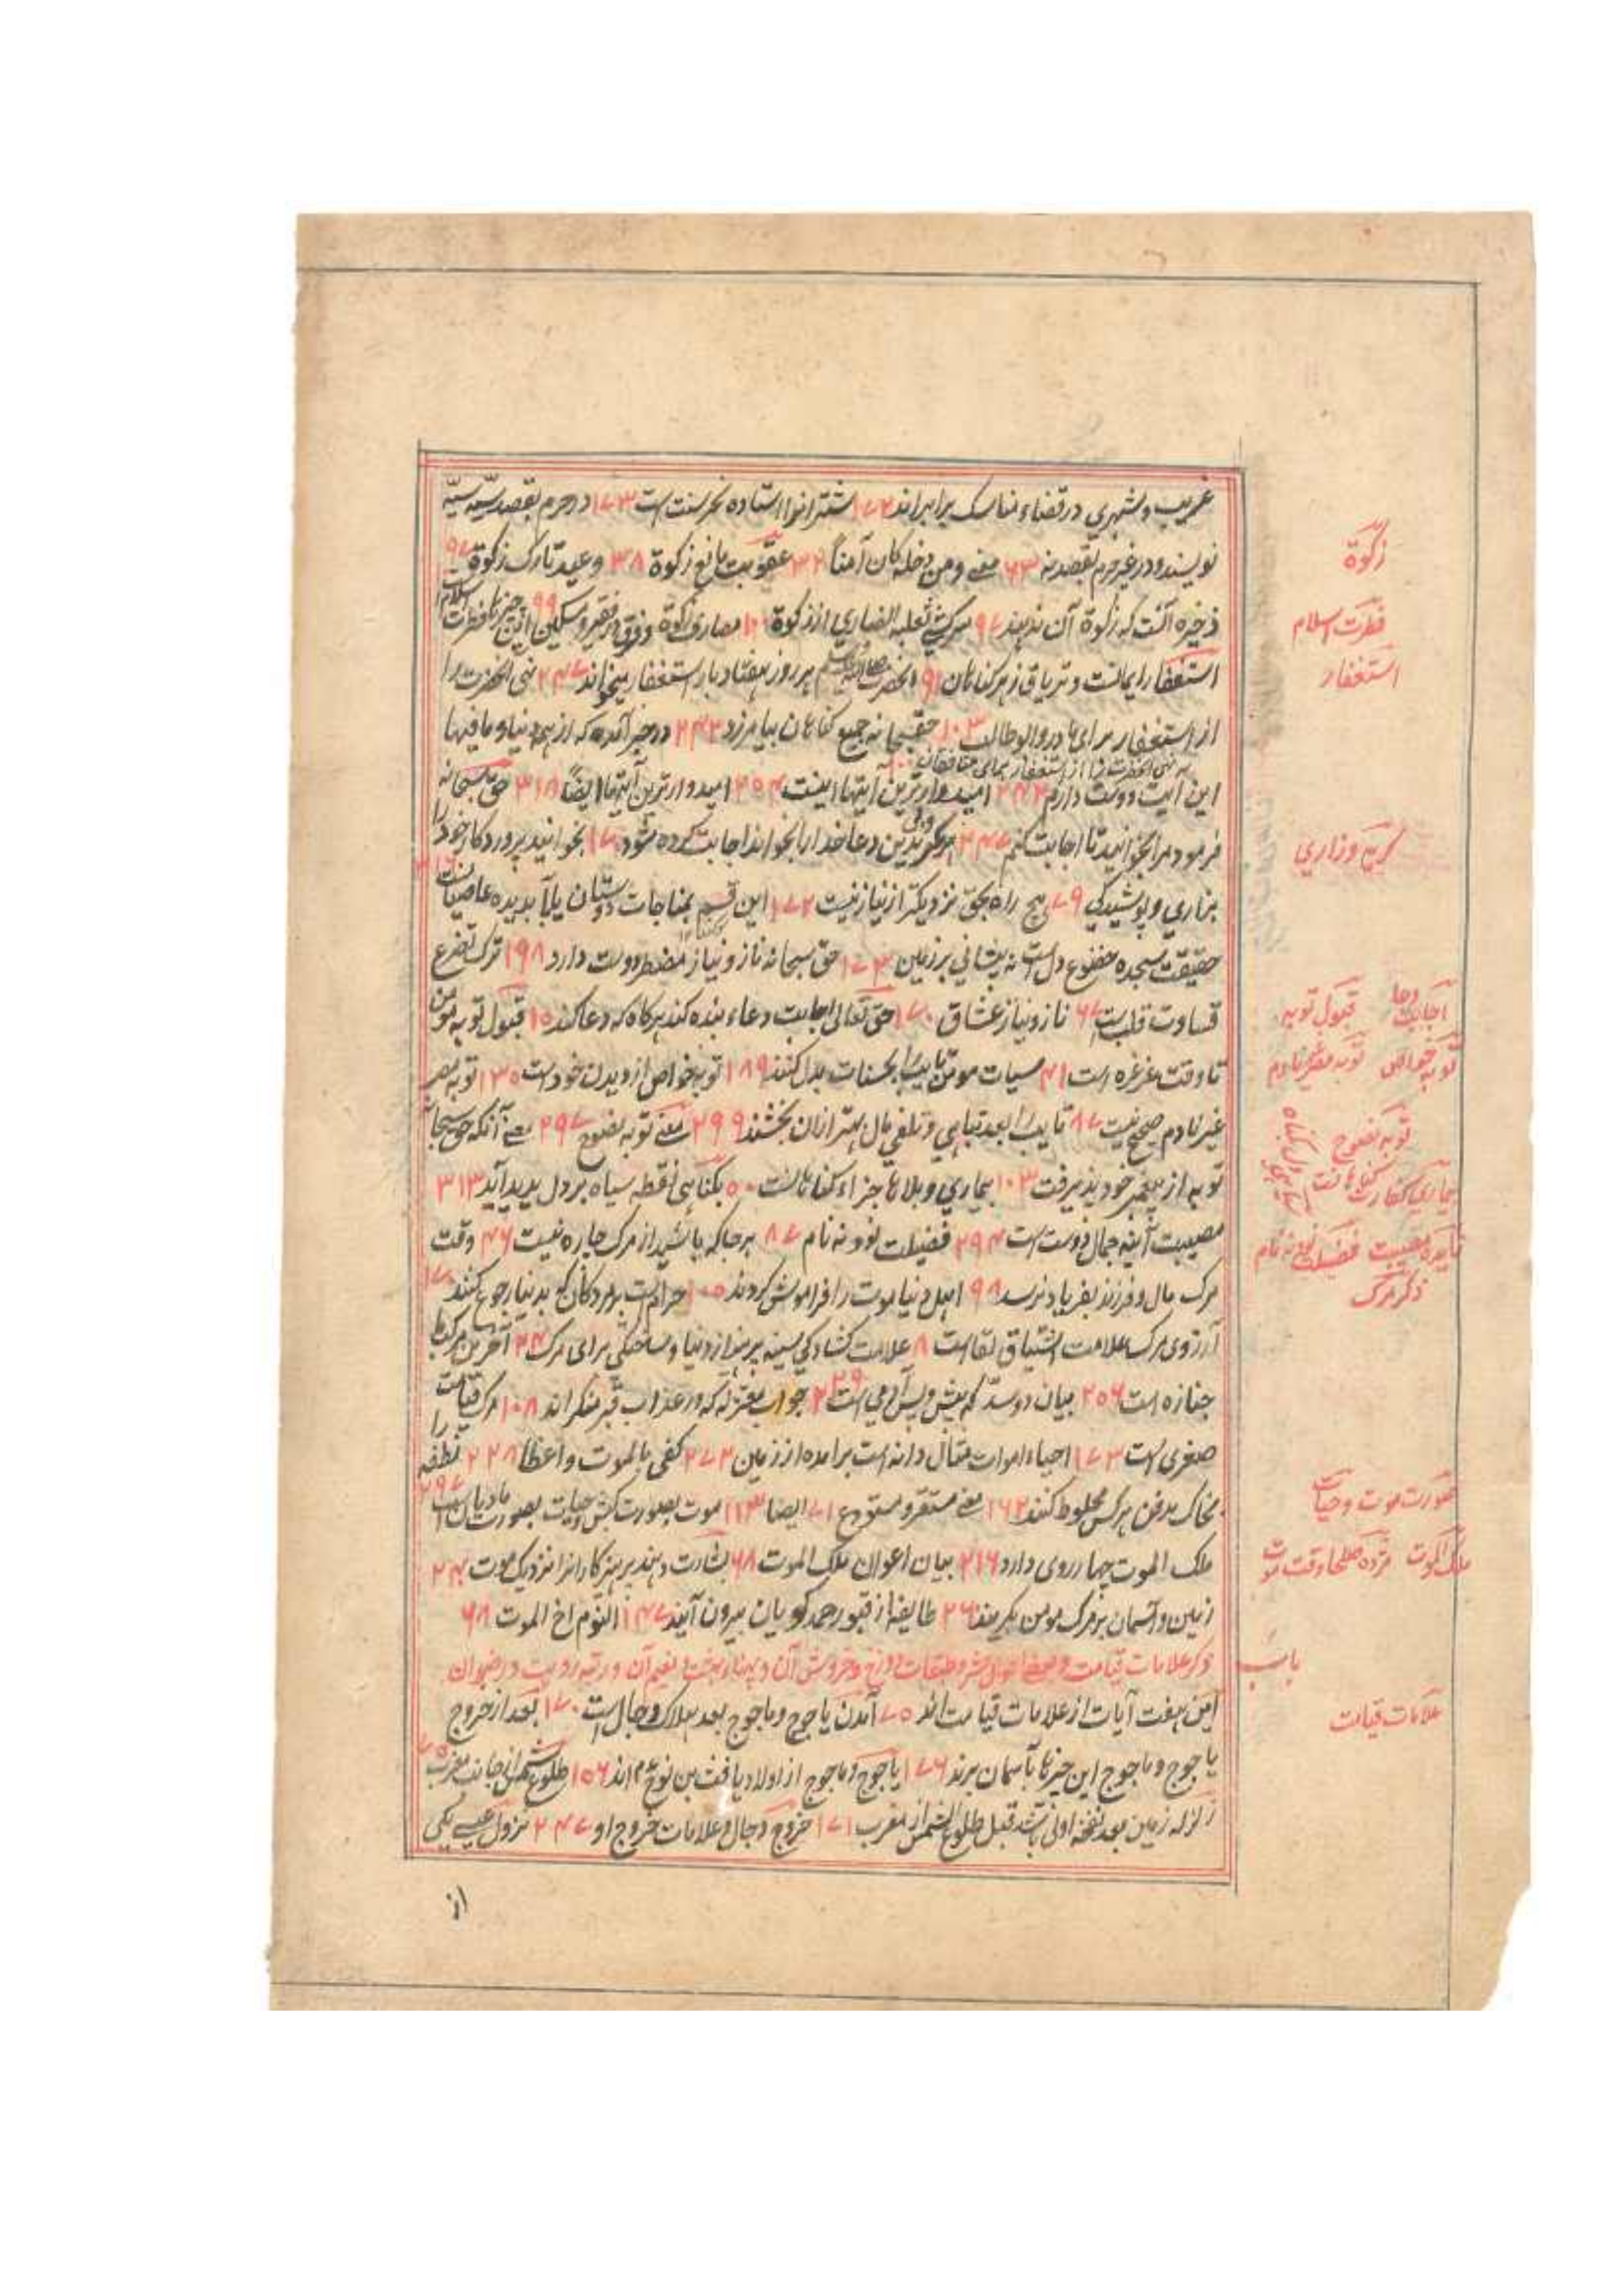 غریب و شهری در قضاء مناسک برابراند ۱۷۲ شتر انرا استاده نحر سنت است ۱۷۳ در حرم بقصد سیّه سیّه
نویسند و در غیر حرم بقصد نه ۶۳ معنی و من دخله کان آمنا ۳۲ عقوبت مانع زکوة ۳۸ وعید تارک زکوة ۹۷
ذخیره آنست که زکوة آن ندهند ۹۷ سرکشی ثعلبه انصاری از زکوة ۱۰۰ مصارف زکوة و فرق در فقیر و مسکین ۹۹ این چیزها فطرت اسلام
استغفار ایمانست و تریاق زهر کناهان ۹۱ آنحضرت صلی الله علیه وسلم هر روز هفتاد بار استغفار میخواند ۲۴۷ نهی آنحضرت را
از استغفار برای مادر و ابوطالب ۱۰۳ حقسبحانه جمیع کناهان بیامرزد ۲۴۳ در خبر آمده که از همه دنیا و مافیها
نهی آنحضرت را از استغفار برای منافقان ۱۰۰
این آیت دوست دارم ۲۴۳ امیدوارترین آیتها اینست ۲۵۴ امیدوارترین آیتها ایضاً ۳۱۸ حق سبحانه
فرمود مرا بخوانید تا اجابت کنم ۲۴۷ هرکه بدین دعا خدا را بخواند اجابت کرده شود ۱۷ بخوانید پروردکار خود را
بزاری و پوشیدکی ۷۹ هیچ راه بحق نزدیکتر از نیاز نیست ۱۷۲ این قسم بمناجات دوستان یا آب دیده عاصیانست
حقیقت سجده خضوع دل است نه پیشانی بر زمین ۱۷۳ حق سبحانه ناز و نیاز مضطر دوست دارد ۱۹۸ ترک تضرع
قساوت قلب است ۶۷ ناز و نیاز عشاق ۱۷۰ حق تعالی اجابت دعاء بنده کند هرکاه که دعا کند ۱۵ قبول توبه مومن
تا وقت غرغره است ۴۱ سیات مومن تایب را بحسنات بدل کنند ۱۸۹ توبه خواص از دیدن خود است ۱۳۵ توبه مصر
غیر نادم صحیح نیست ۸۷ تایب را بعد تباهی و تلفی مال بهتر از ان بخشند ۲۹۹ معنی توبه نصوح ۲۹۷ معنی آنکه حق سبحانه
توبه از پیغمبر خود پذیرفت ۱۰۳ بیماری و بلاها جزاء کناهانست ۵۰ بکناهی نقطه سیاه بر دل پدید آید ۳۱۳
مصیبت آینه جمال دوست است ۲۹۴ فضیلت نود و نه نام ۸۷ هرجا که باشید از مرک چاره نیست ۴۶ وقت
مرک مال و فرزند بفریاد نرسد ۹۸ اهل دنیا موت را فراموش کردند ۱۰۵ حرام است بر مردکان که بدنیا رجوع کنند ۱۷۰
آرزوی مرک علامت اشتیاق لقاست ۸ علامت کشادکی سینه پرهیز از دنیا و ساختکی برای مرک ۲۴ آخرین مرکبها
جنازه است ۲۵۶ بیان دو سدّ که پیش و پس آدمی است ۲۲۹ جواب معتزله که در عذاب قبر منکراند ۱۰۸ مرک قیامت
صغری است ۱۷۳ احیاء اموات مثال دانه است برامده از زمین ۲۷۲ کفی بالموت واعظا ۲۲۸ نطفه را
بخاک مدفن هرکس مخلوط کنند ۱۶۲ معنی مستقر و مستودع ۷۱ ایضا ۱۱۳ موت بصورت کبش و حیات بصورت مادیان است ۲۹۷
ملک الموت چهار روی دارد ۲۱۶ بیان اعوان ملک الموت ۶۸ بشارت دهند پرهیزکارانرا نزدیک موت ۲۴
زمین و آسمان بر مرک مومن بکریند ۲۶۰ طایفه از قبور حمدکویان بیرون آیند ۱۴۷ النوم اخ الموت ۶۸
ذکر علامات قیامت و بعضی احوال حشر و طبقات دوزخ و خروش آن و پهناء بهشت و نعیم آن و رتبه رویت و رضوان
این هفت آیات از علامات قیامت اند ۷۵ آمدن یاجوج و ماجوج بعد هلاک دجال است ۱۷۰ بعد از خروج
یاجوج و ماجوج این چیزها بآسمان برند ۱۷۶ یاجوج و ماجوج از اولاد یافث بن نوح ع م اند ۱۵۶ طلوع شمس از جانب مغرب ۷۵
زلزله زمین بعد نفخه اولی باشد قبل طلوع الشمس از مغرب ۱۷۱ خروج دجال و علامات خروج او ۲۴۷ نزول عیسی یکی
از
زکوة
فطرت اسلام
استغفار
کریه و زاری
اجابت دعا قبول توبه
توبه خواص توبه مصر غیر نادم
توبه نصوح
بیماری کفارت کناهانست
فایده مصیبت فضیلت نود و نه نام
ذکر مرک
صورت موت و حیات
ملک الموت مژده صلحا وقت موت
باب
علامات قیامت